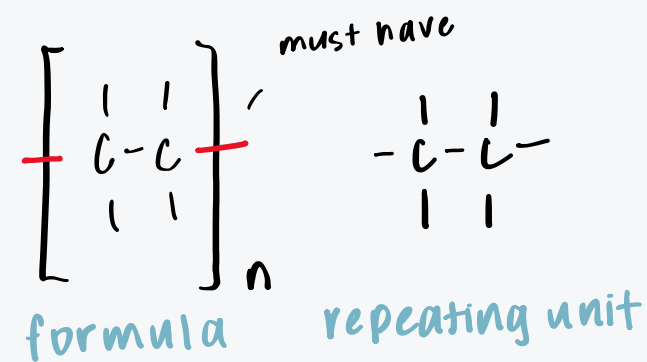 must have
C-C
n
-C-C-
formula
repeating unit